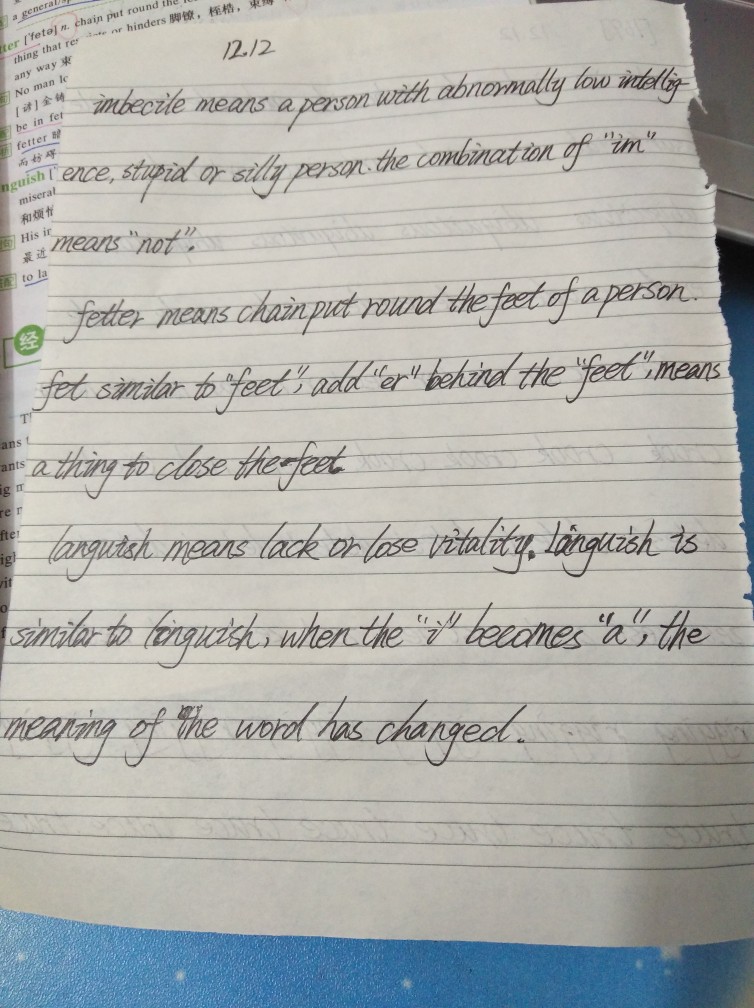 a general/sp
tter ['fetə] n. chain put round the
thing that res or hinders 脚镣，桎梏，束缚
any way 束
No man lo
[谚] 金铸
be in fet
fetter 暗
而妨碍
nguish [
miseral
和烦恼
His ir
最近
to la
经
12.12
imbecile means a person with abnormally low intellig-
ence, stupid or silly person. the combination of "im"
means "not".
fetter means chain put round the feet of a person.
fet similar to "feet", add "er" behind the "feet", means
a thing to close the feet
languish means lack or lose vitality. Languish is
similar to linguish, when the "i" becomes "a", the
meaning of the word has changed.